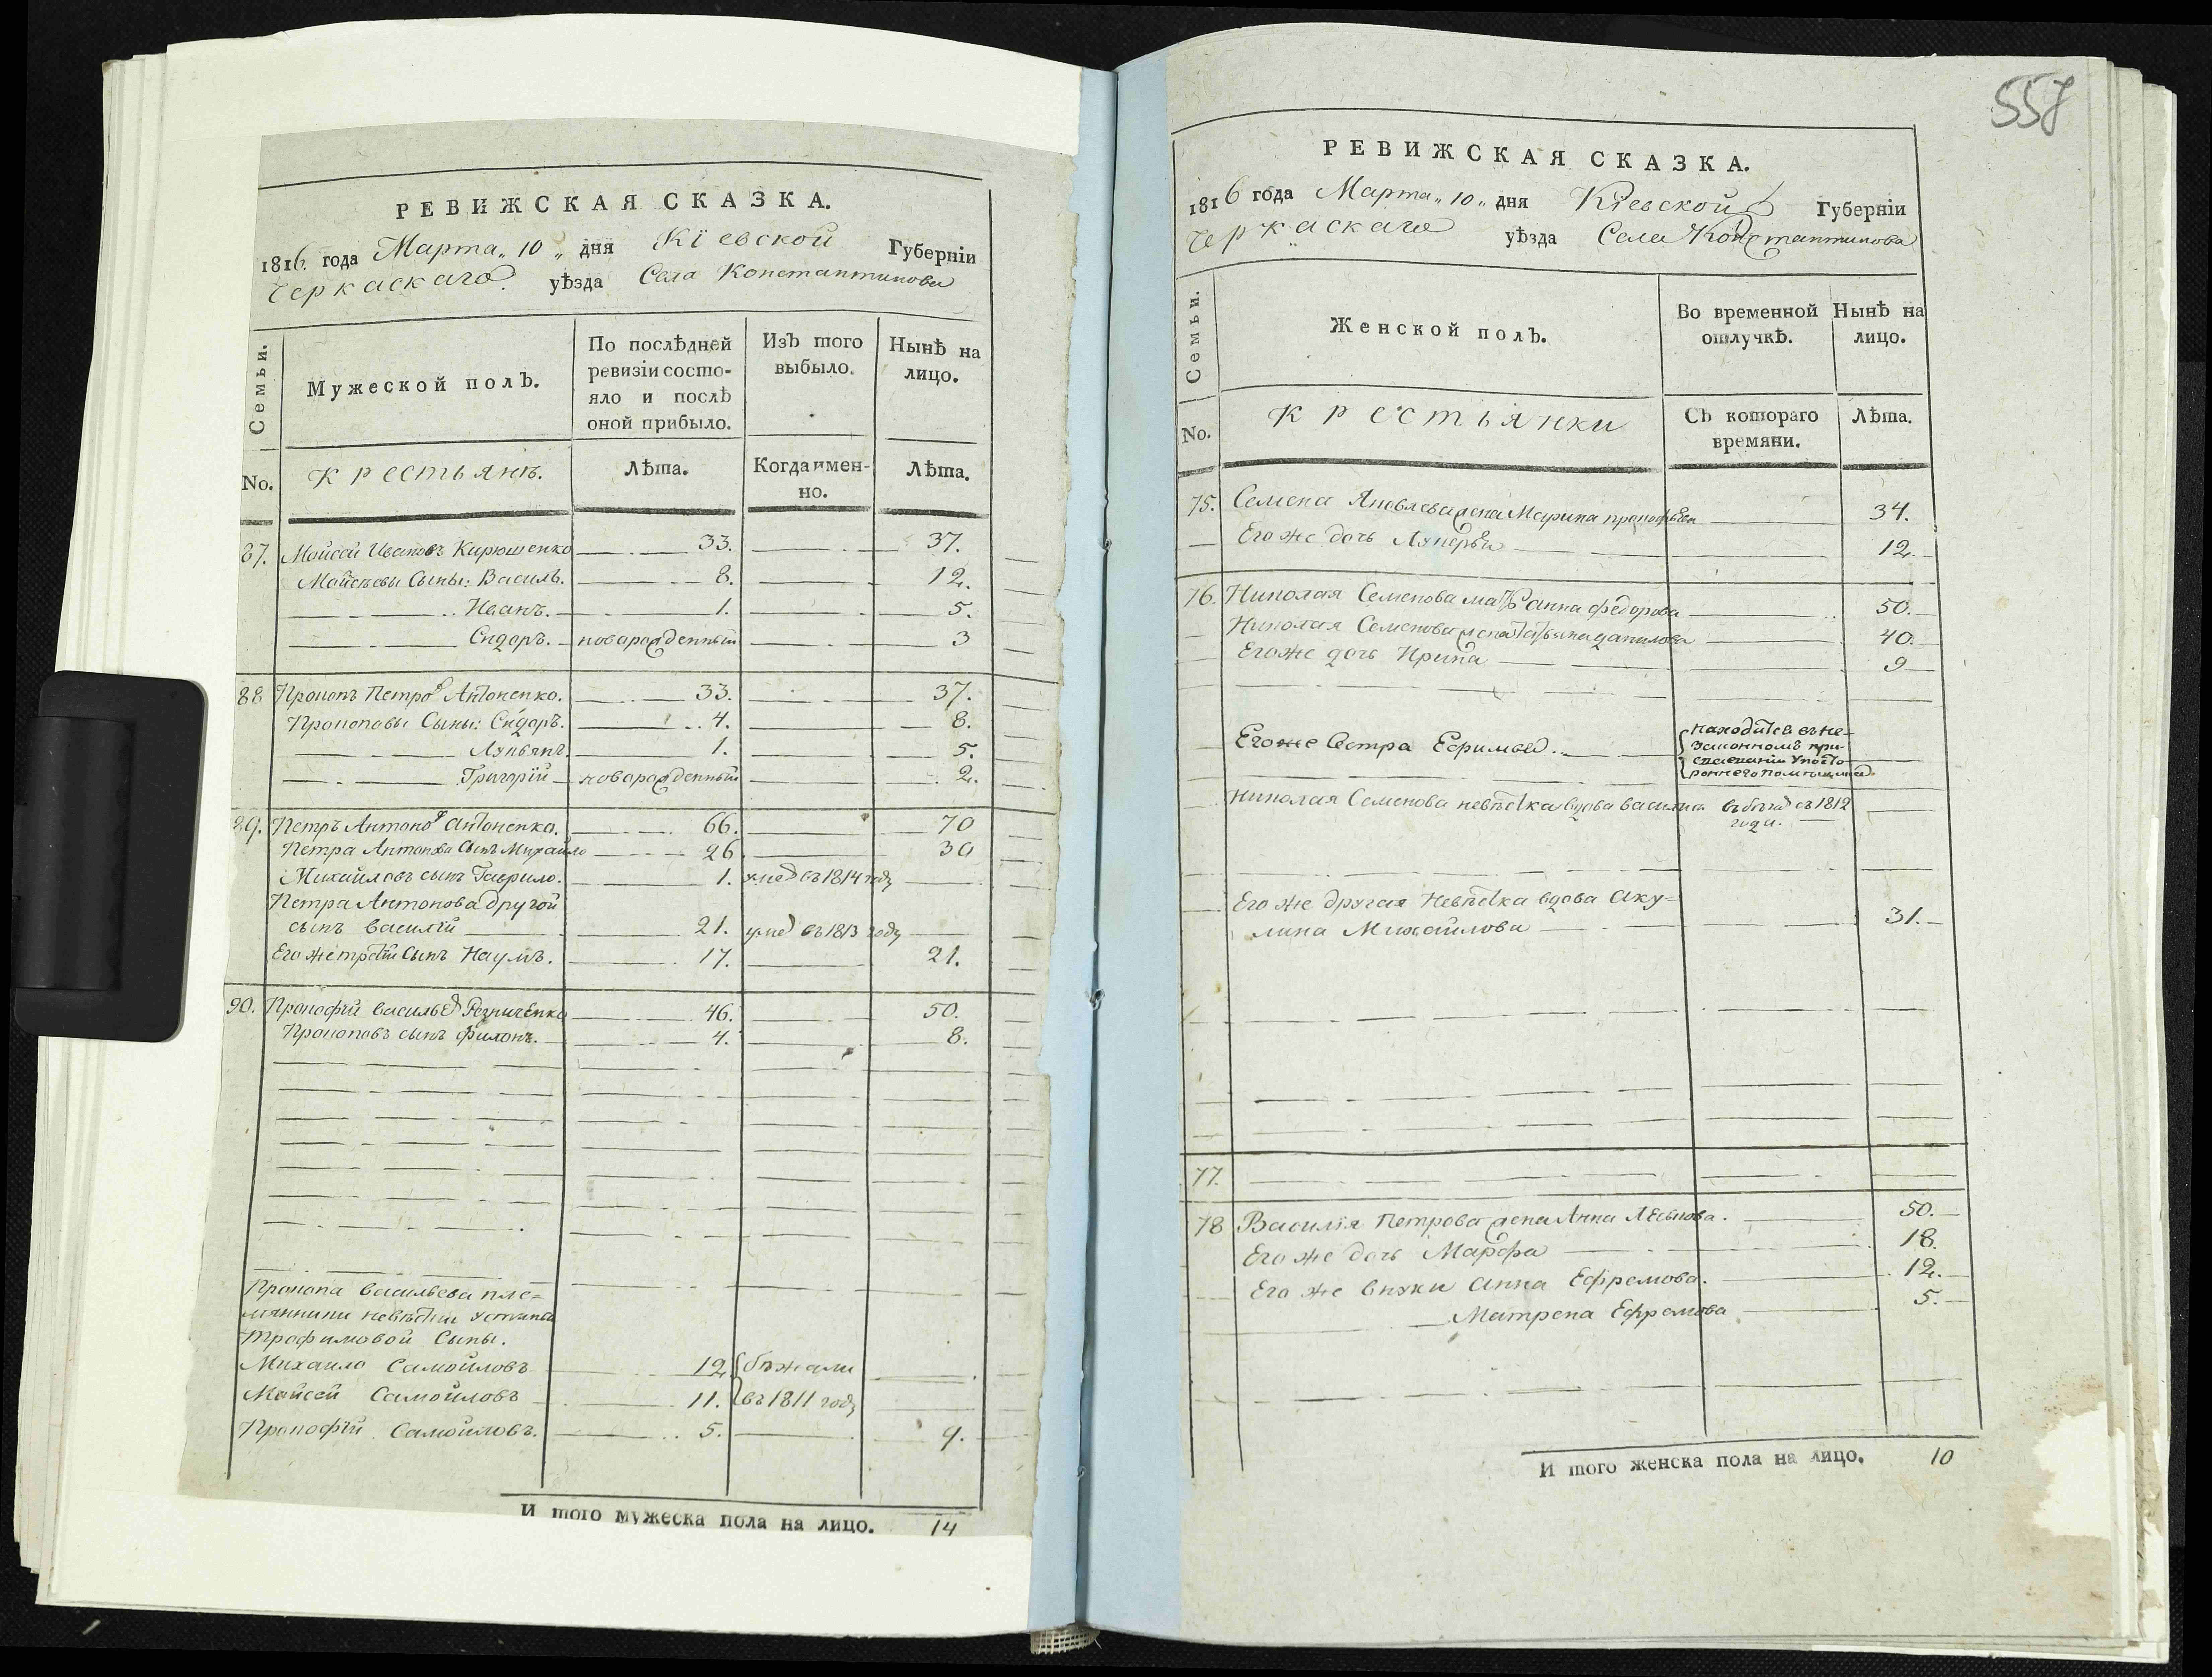 РЕВИЖСКАЯ СКАЗКА.
1816. года Марта „ 10 „ дня Кіевской Губерніи
Черкаскаго уѣзда Села Константинова
Семьи.
Мужеской полЪ.
По послѣдней
ревизіи состо-
яло и послѣ
оной прибыло.
ИзЪ того
выбыло.
Нынѣ на
лицо.
No.
Крестьянѣ.
Лѣта.
Когда имен-
но.
Лѣта.
87. Мойсей Ивановъ Кирюшенко 33. 37.
Мойсѣевы Сыны: Василь. 8. 12.
Иванъ. 1. 5.
Сидоръ. новорожденный 3
88 Прокопъ Петровъ Антоненко. 33. 37.
Прокоповы Сыны: Сидоръ. 4. 8.
Лукьянъ. 1. 5.
Григорїй новорожденный 2.
89. Петръ Антоновъ Антоненко. 66. 70
Петра Антонова Сынъ Михайло 26 30
Михайловъ сынъ Гаврило. 1. умер въ 1814 году
Петра Антонова другой
сынъ Василїй 21. умер въ 1813 году
Его же третїй Сынъ Наумъ. 17. 21.
90. Прокофїй Васильев Резниченко 46. 50.
Прокоповъ сынъ Филонъ. 4. 8.
Прокопа Васильева пле=
мянники невѣстки Устиньи
Трофимовой Сыны.
Михайло Самойловъ 12. бѣжали
Мойсей Самойловъ 11. въ 1811 году
Прокофїй Самойловъ. 5. 9.
И того мужеска пола на лицо. 14
557
РЕВИЖСКАЯ СКАЗКА.
1816 года Марта „ 10 „ дня Кіевской Губерніи
Черкаскаго уѣзда Села Константинова
Семьи.
Женской полЪ.
Во временной
отлучкѣ.
Нынѣ на
лицо.
No.
Крестьянки
СЪ котораго
времяни.
Лѣта.
75. Семена Яковлева жена Марина прокофьева 34.
Его же дочь Лукерья 12.
76. Николая Семенова мать Анна федорова 50.
Николая Семенова жена Татьяна данилова 40.
Его же дочь Ирина 9
Его же Сестра Ефимья. находится въ не-
законномъ при-
держании у посто-
роннего помещика
Николая Семенова невѣстка вдова василиса въ бѣгах съ 1812
года.
Его же другая Невѣстка вдова Аку=
лина Михайлова 31.
77.
78 Василїя Петрова жена Анна Лѣонова. 50.
Его же дочь Марфа 18.
Его же внуки Анна Ефремова. 12.
Матрена Ефремова 5.
И того женска пола на лицо. 10